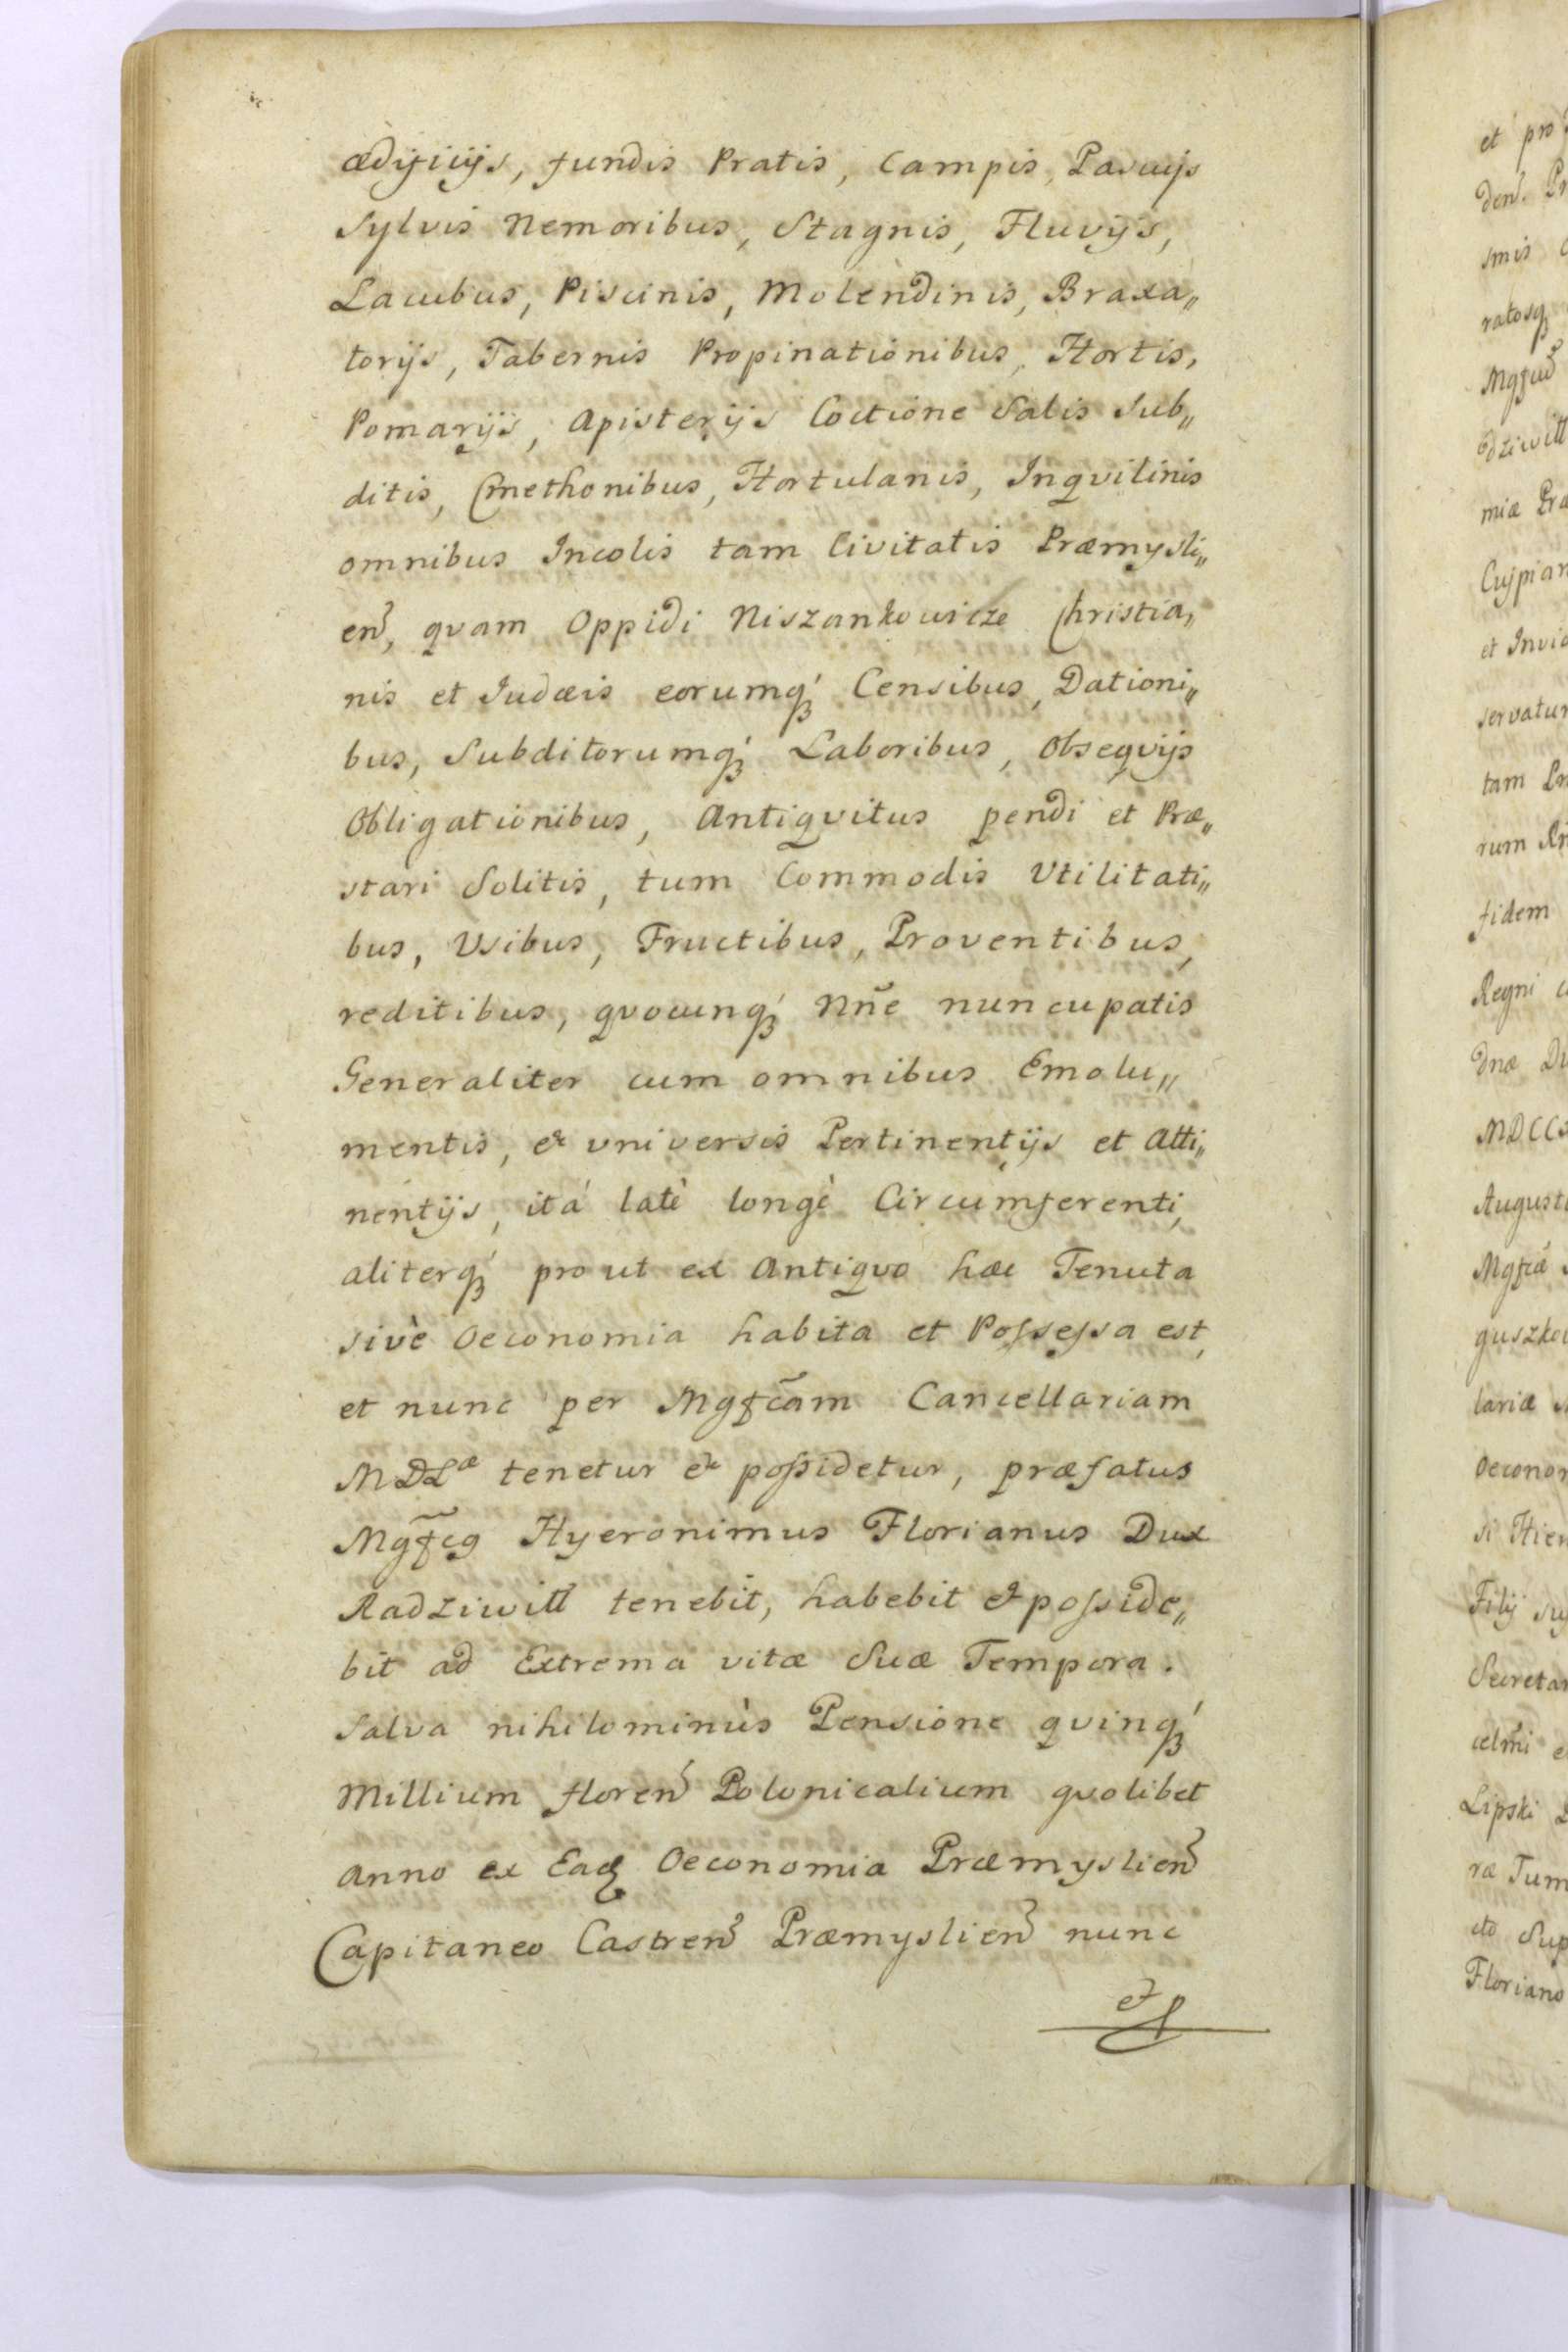 ædificijs, fundis Pratis, Campis, Pascuijs
Sylvis Nemoribus, Stagnis, Fluvijs,
Lacubus, Piscinis, Molendinis, Braxa„
torijs, Tabernis Propinationibus, Hortis,
Pomarijs, Apisterijs Coctione Salis Sub„
ditis, Cmethonibus, Hortulanis, Inqvilinis
omnibus Incolis tam Civitatis Præmysli„
eñ, qvam Oppidi Niszankowicze Christia„
nis et Judæis eorumqꝫ Censibus, Dationi„
bus, Subditorumqꝫ Laboribus, Obseqvijs
Obligationibus, Antiqvitus pendi et Præ„
stari Solitis, tum Commodis Vtilitati„
bus, Vsibus, Fructibus, Proventibus,
reditibus, qvocunqꝫ Nñe nuncupatis
Generaliter cum omnibus Emolu„
mentis, & vniversis Pertinentijs et Atti„
nentijs, itá latè longè Circumferenti„
aliterqꝫ prout ex Antiqvo hæc Tenuta
sivè Oeconomia habita et Possessa est,
et nunc per Mgfc̃am Cancellariam
MDLæ tenetur & possidetur, præfatus
Mgf̃cꝯ Hyeronimus Florianus Dux
Radziwiłł tenebit, habebit et posside„
bit ad Extrema vitæ Suæ Tempora.
Salva nihilominùs Pensione qvinqꝫ
Millium floreñ Polonicalium qvolibet
Anno ex Eadꝫ Oeconomia Præmyslieñ
Capitaneo Castreñ Præmyslieñ nunc
et p
et pro
deñ. Pr
smis
ratosqꝫ
dziwiłł
miæ Præ
Cujpian
et Invio
servatur
tam
rum
fidem
Regni
Dnæ
MDCC
Augusti
Mgfcæ
guszko
lariæ
Oeconom
si Hier
Filij
Secretar
celm̃i e
Lipski
ræ Tum
cto Sup
Floriano